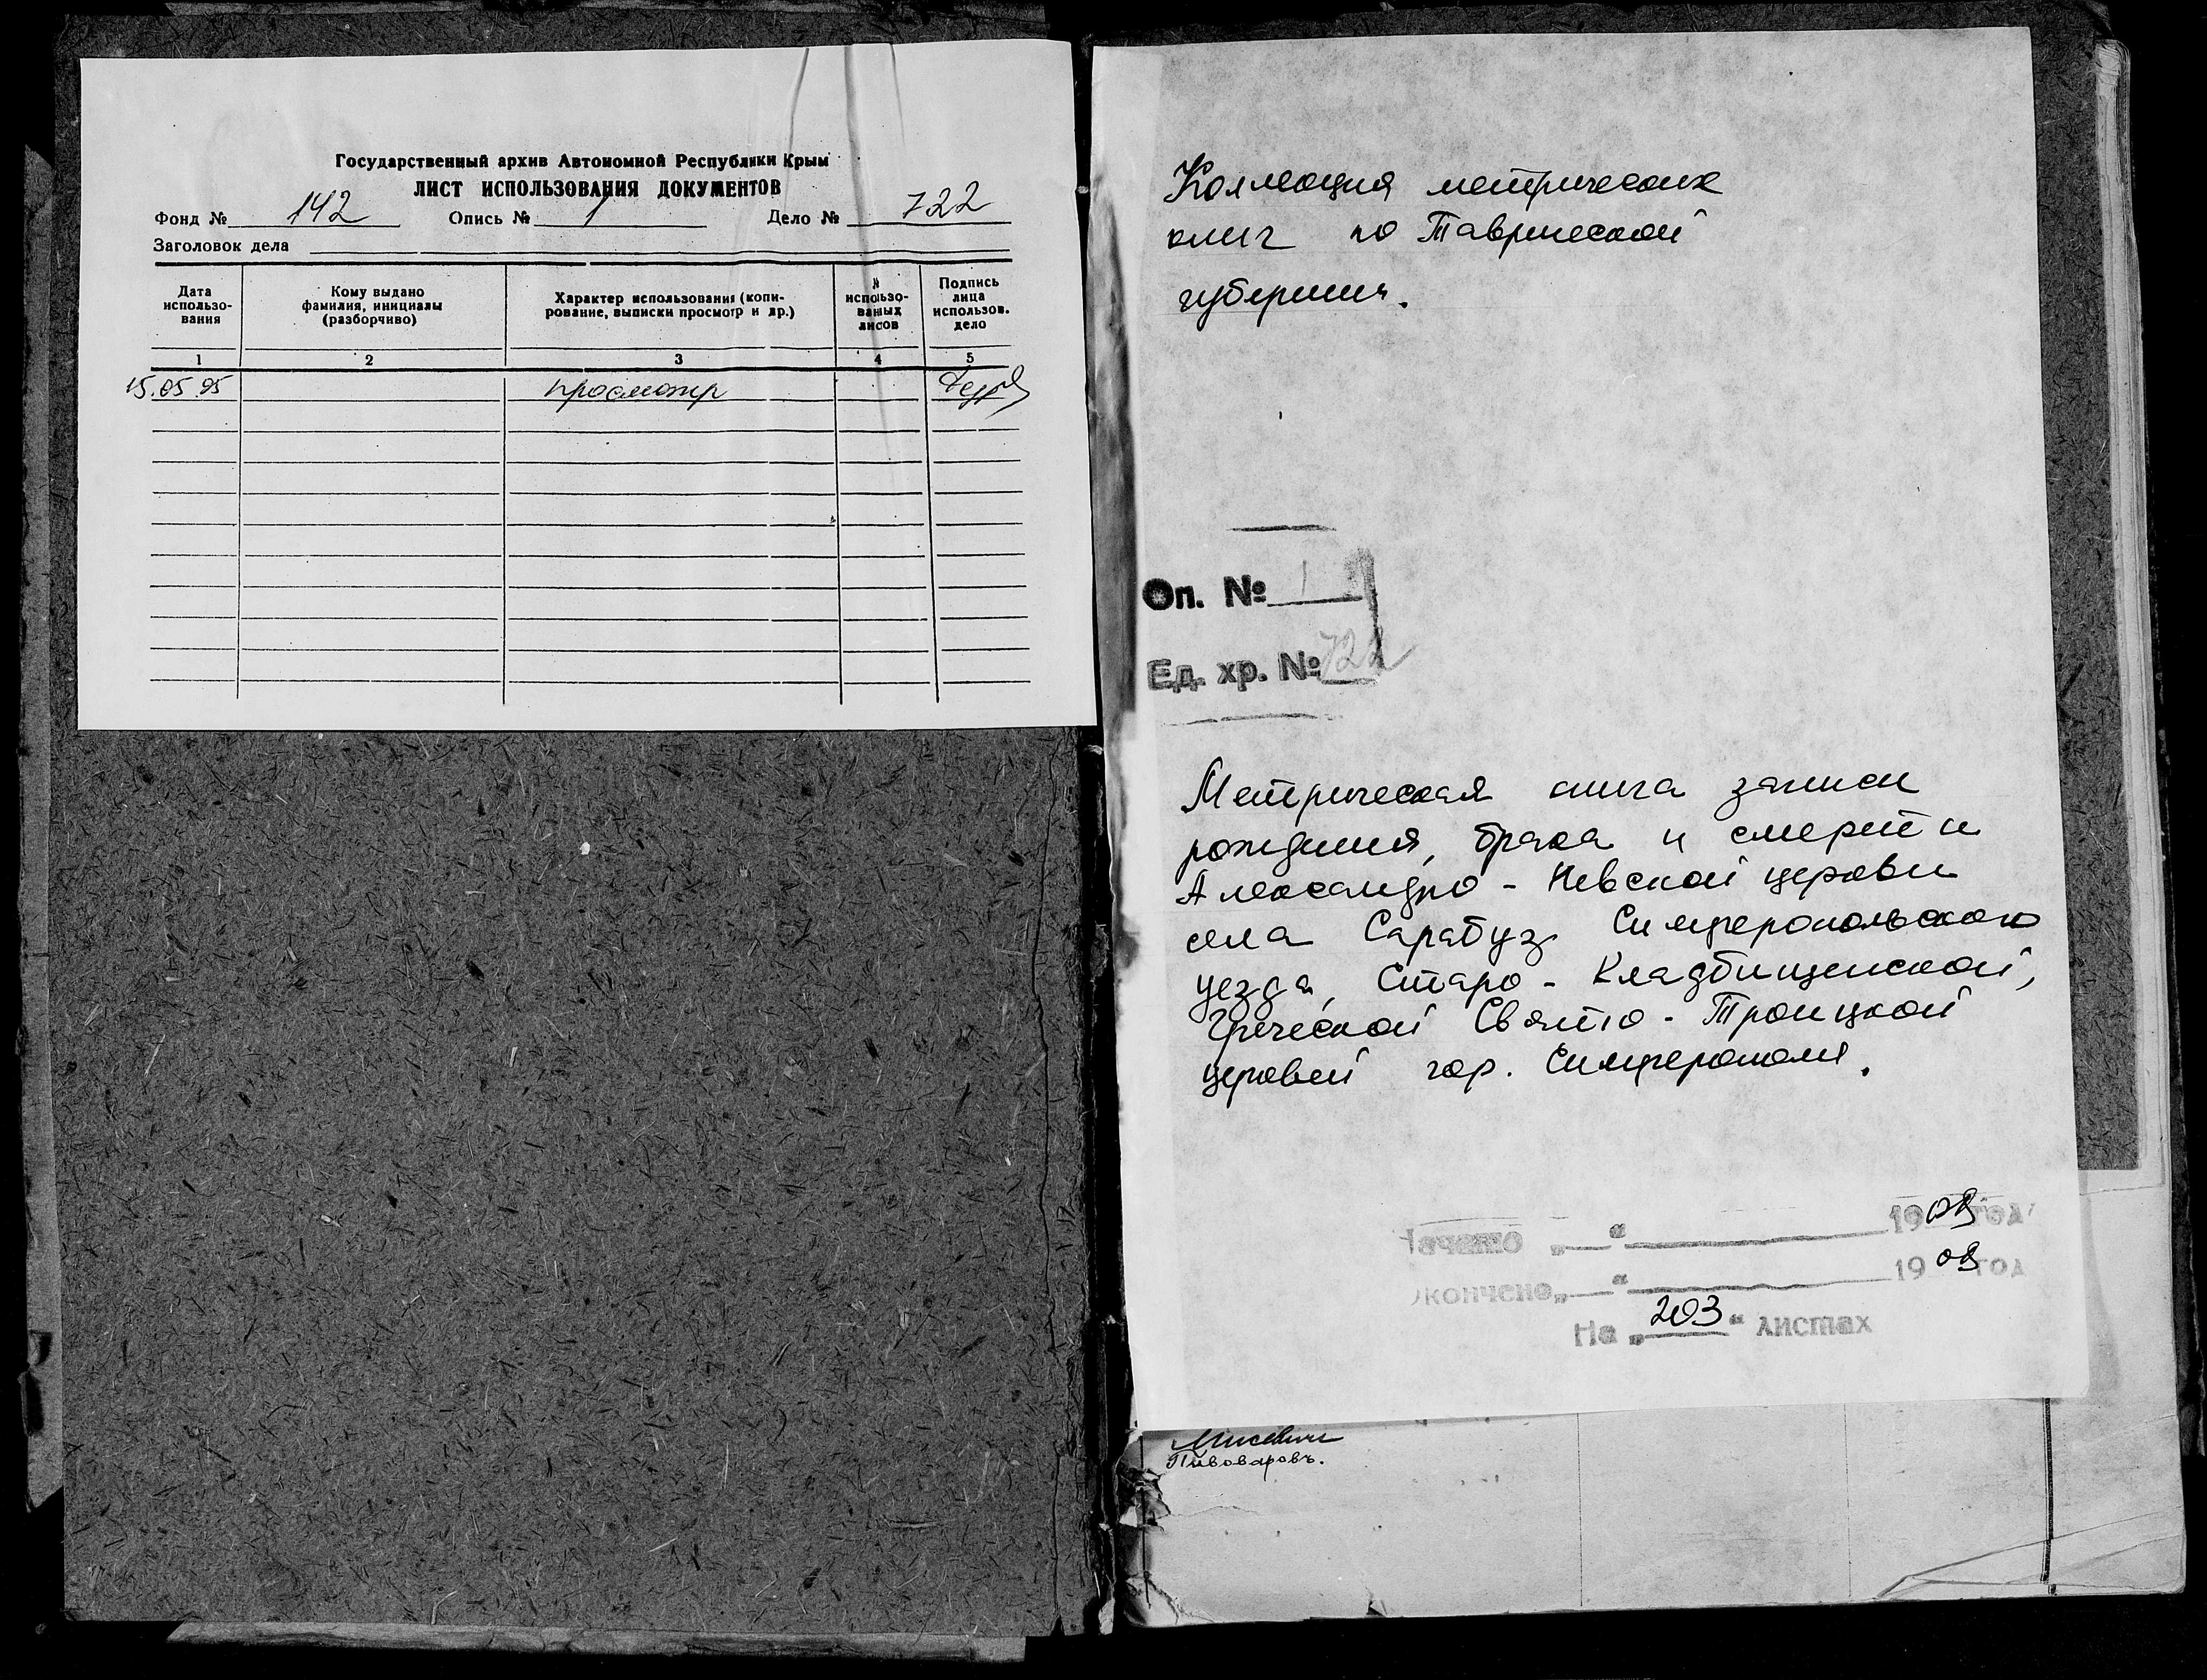 Государственный архив Автономной Республики Крым
ЛИСТ ИСПОЛЬЗОВАНИЯ ДОКУМЕНТОВ
Фонд № 142 Опись № 1 Дело № 722
Заголовок дела
Дата использо-вания
Кому выдано фамилия, инициалы (разборчиво)
Характер использования (копи-рование, выписки просмотр и др.)
№ использо-ваных лисов
Подпись лица использов. дело
1 2 3 4 5
15.05.95 просмотр
Коллекция метрических
книг по Таврической
губернии.
Оп. № 1
Ед. хр. № 722
Метрическая книга записи
рождения, брака и смерти
Александро - Невской церкви
села Сарабуз Симферопольского
уезда, Старо - Кладбищенской,
Греческой Свято - Троицкой
церквей гор. Симферополя.
Начато „ “ 1909 год
Окончено „ “ 1909 год
На „203“ листах
Пивоваровъ.